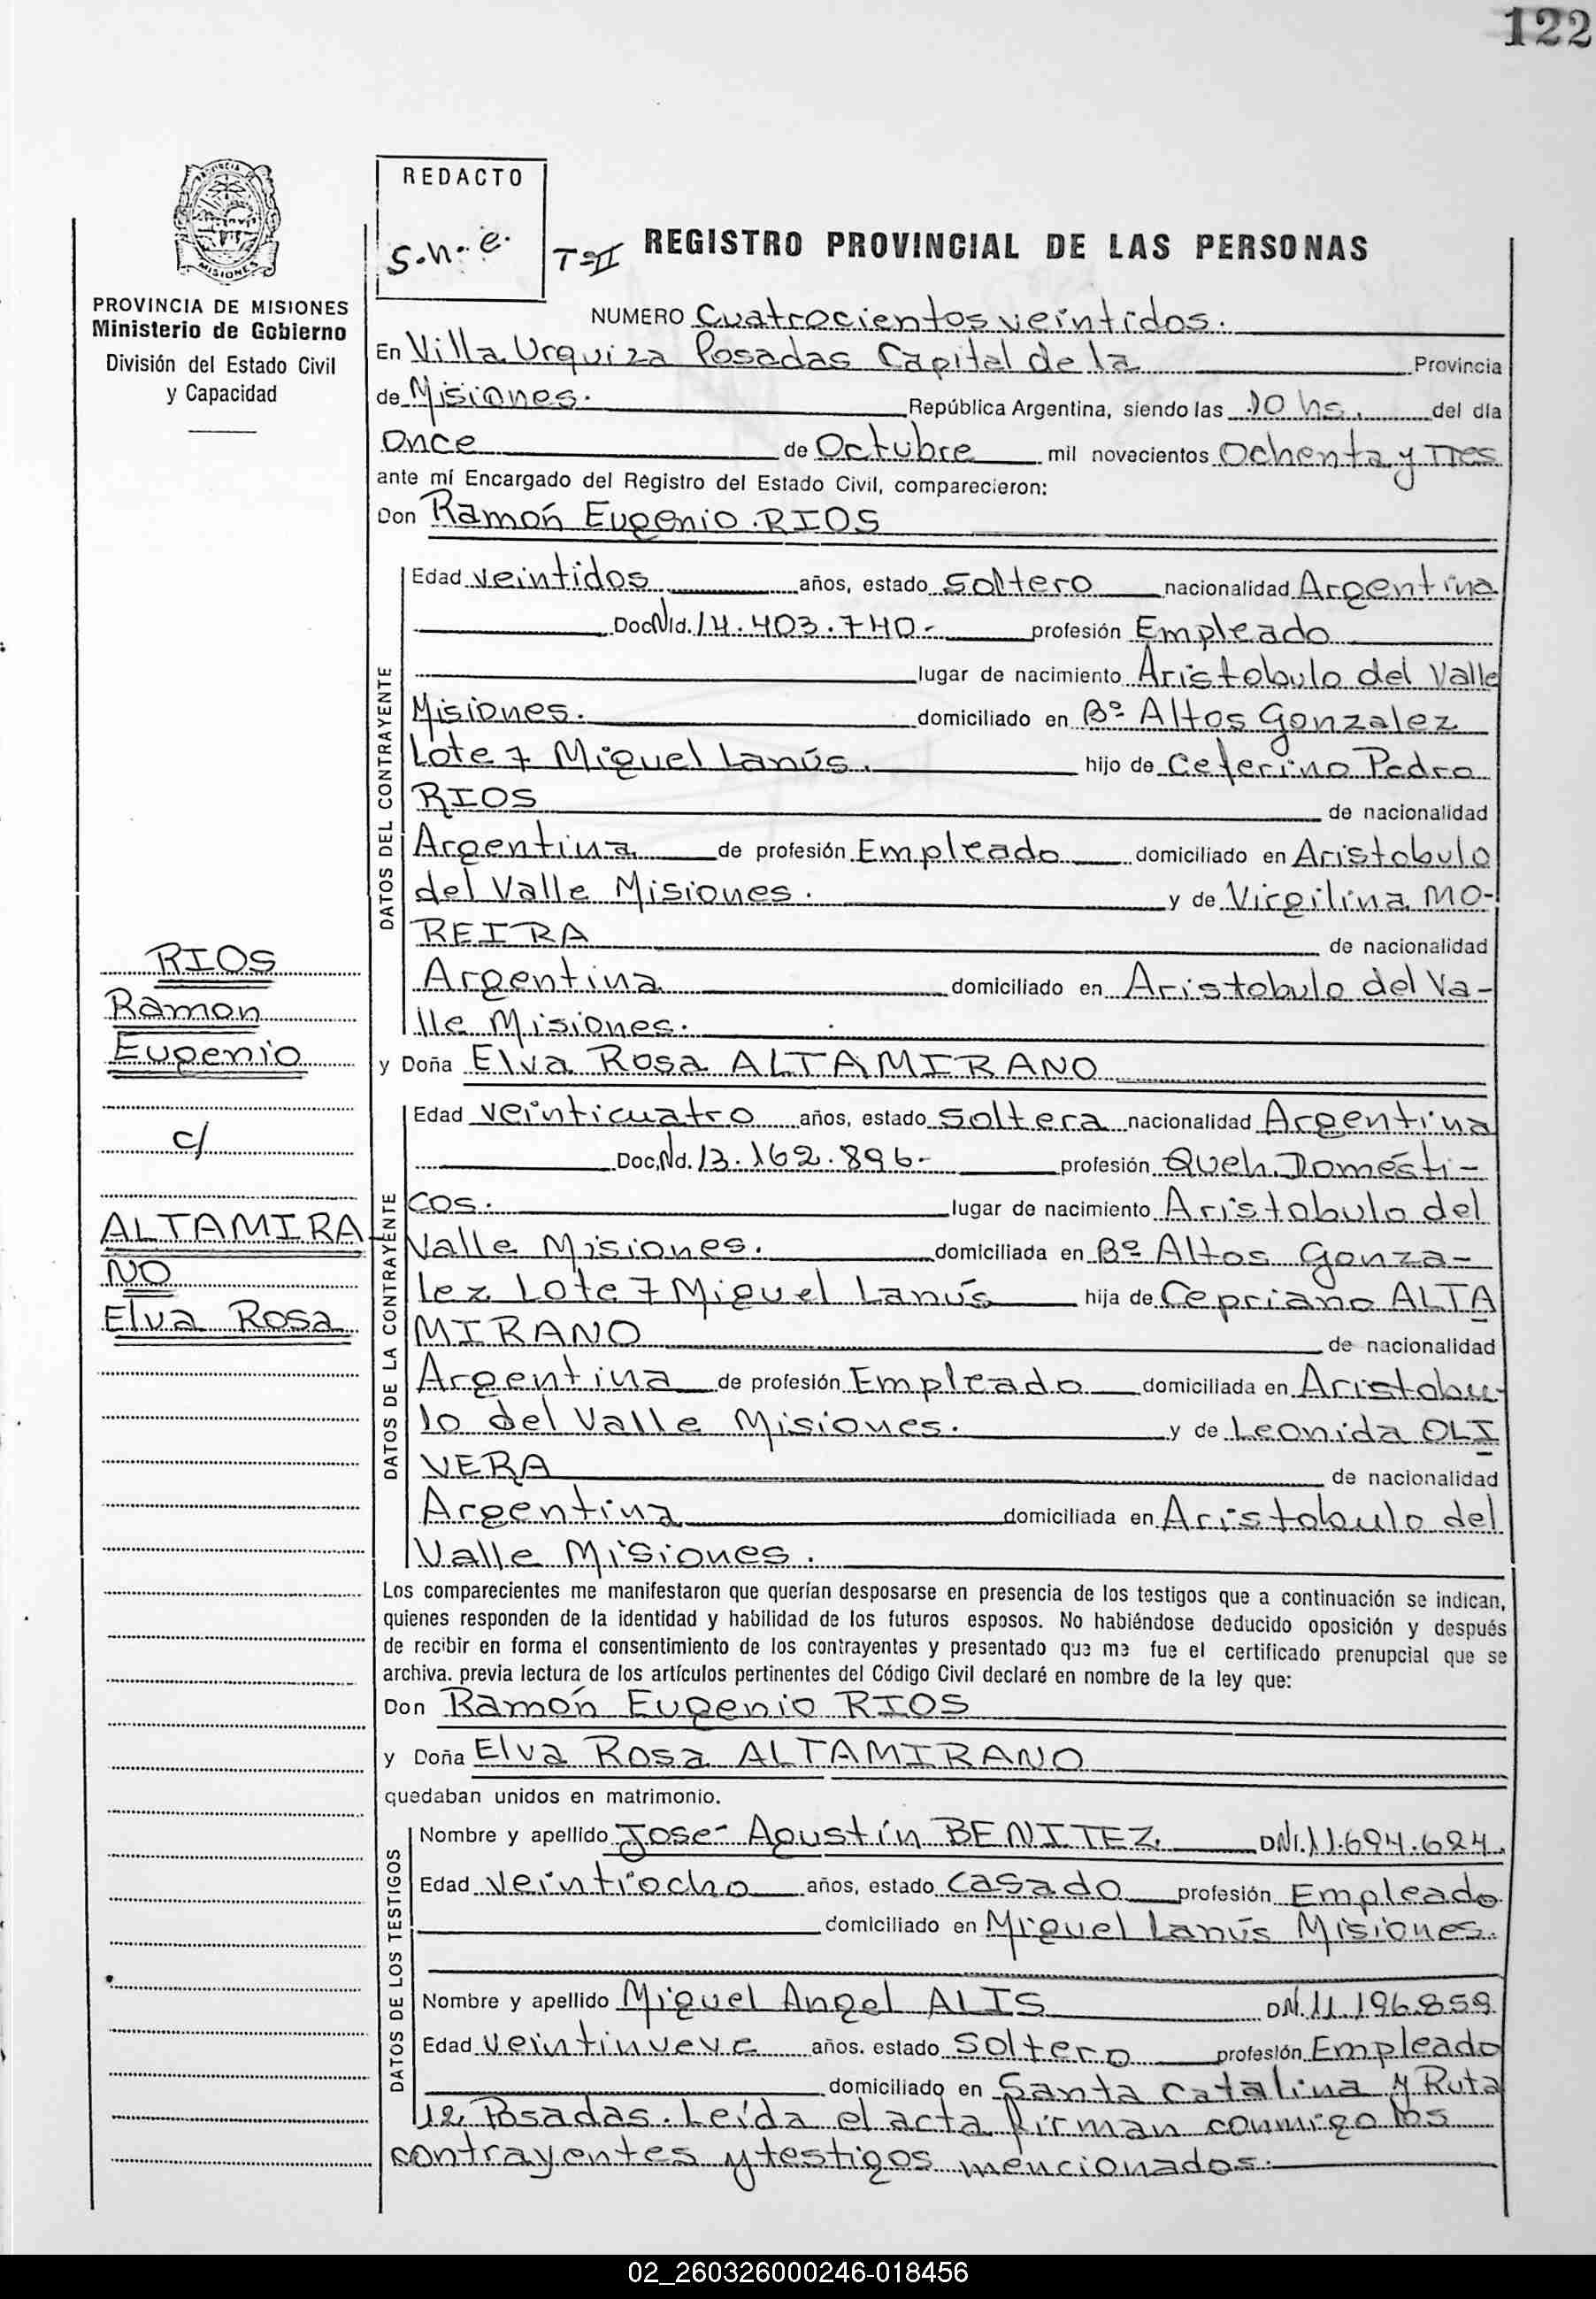 122
REDACTO
S.n.e.
T=II
REGISTRO PROVINCIAL DE LAS PERSONAS
PROVINCIA DE MISIONES
Ministerio de Gobierno
División del Estado Civil
y Capacidad
NUMERO Cuatrocientos veintidos.
En Villa Urquiza Posadas Capital de la Provincia
de Misiones. República Argentina, siendo las 10 hs. del día
Once de Octubre mil novecientos Ochenta y Tres
ante mí Encargado del Registro del Estado Civil, comparecieron:
Don Ramón Eugenio RIOS
DATOS DEL CONTRAYENTE
Edad veintidos años, estado Soltero nacionalidad Argentina
Doc. Nd. 14.403.740.- profesión Empleado
lugar de nacimiento Aristobulo del Valle
Misiones. domiciliado en Bº Altos Gonzalez
Lote 7 Miguel Lanús. hijo de Ceferino Pedro
RIOS de nacionalidad
Argentina de profesión Empleado domiciliado en Aristobulo
del Valle Misiones. y de Virgilina MO-
REIRA de nacionalidad
Argentina domiciliado en Aristobulo del Va-
lle Misiones.
y Doña Elva Rosa ALTAMIRANO
RIOS
Ramon
Eugenio
c/
ALTAMIRA
NO
Elva Rosa
DATOS DE LA CONTRAYENTE
Edad veinticuatro años, estado Soltera nacionalidad Argentina
Doc. Nd. 13.162.896- profesión Queh. Domésti-
cos. lugar de nacimiento Aristobulo del
Valle Misiones. domiciliada en Bº Altos Gonza-
lez Lote 7 Miguel Lanús hija de Cepriano ALTA
MIRANO de nacionalidad
Argentina de profesión Empleado domiciliada en Aristobu-
lo del Valle Misiones. y de Leonida OLI
VERA de nacionalidad
Argentina domiciliada en Aristobulo del
Valle Misiones.
Los comparecientes me manifestaron que querían desposarse en presencia de los testigos que a continuación se indican,
quienes responden de la identidad y habilidad de los futuros esposos. No habiéndose deducido oposición y después
de recibir en forma el consentimiento de los contrayentes y presentado que me fue el certificado prenupcial que se
archiva. previa lectura de los artículos pertinentes del Código Civil declaré en nombre de la ley que:
Don Ramón Eugenio RIOS
y Doña Elva Rosa ALTAMIRANO
quedaban unidos en matrimonio.
DATOS DE LOS TESTIGOS
Nombre y apellido Jose Agustín BENITEZ DNI. 11.694.624.
Edad veintiocho años, estado Casado profesión Empleado
domiciliado en Miguel Lanús Misiones.
Nombre y apellido Miguel Angel ALIS DNI. 11.196.859
Edad veintinueve años. estado Soltero profesión Empleado
domiciliado en Santa Catalina y Ruta
12 Posadas. Leída el acta firman conmigo los
contrayentes y testigos mencionados.
02_260326000246-018456